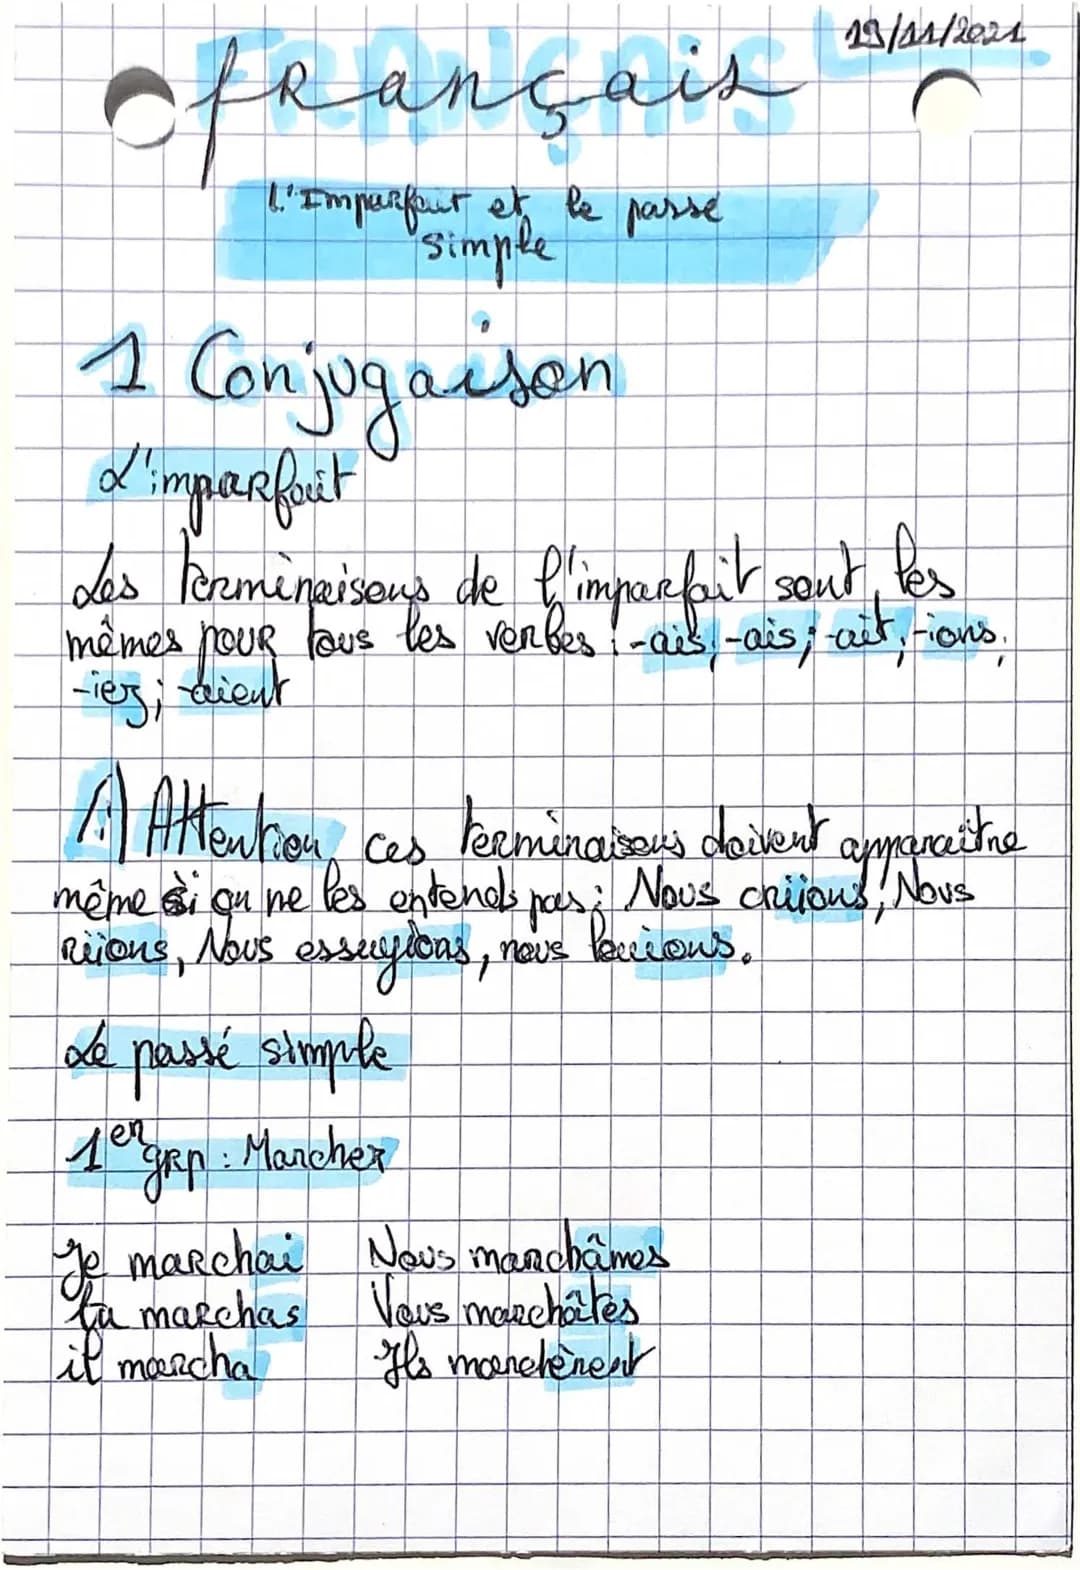 19/11/2021
Français
L'Imparfait et le passé
simple
1 Conjugaison
L'imparfait
Les terminaisons de l'imparfait sont les
mêmes pour tous les verbes : -ais; -ais; -ait; -ions;
-iez; -aient
/!\ Attention, ces terminaisons doivent apparaître
même si on ne les entends pas : Nous criions, Nous
riions, Nous essuyions, nous
Le passé simple
1er grp : Marcher
Je marchai Nous marchâmes
tu marchas Vous marchâtes
il marcha Ils marchèrent